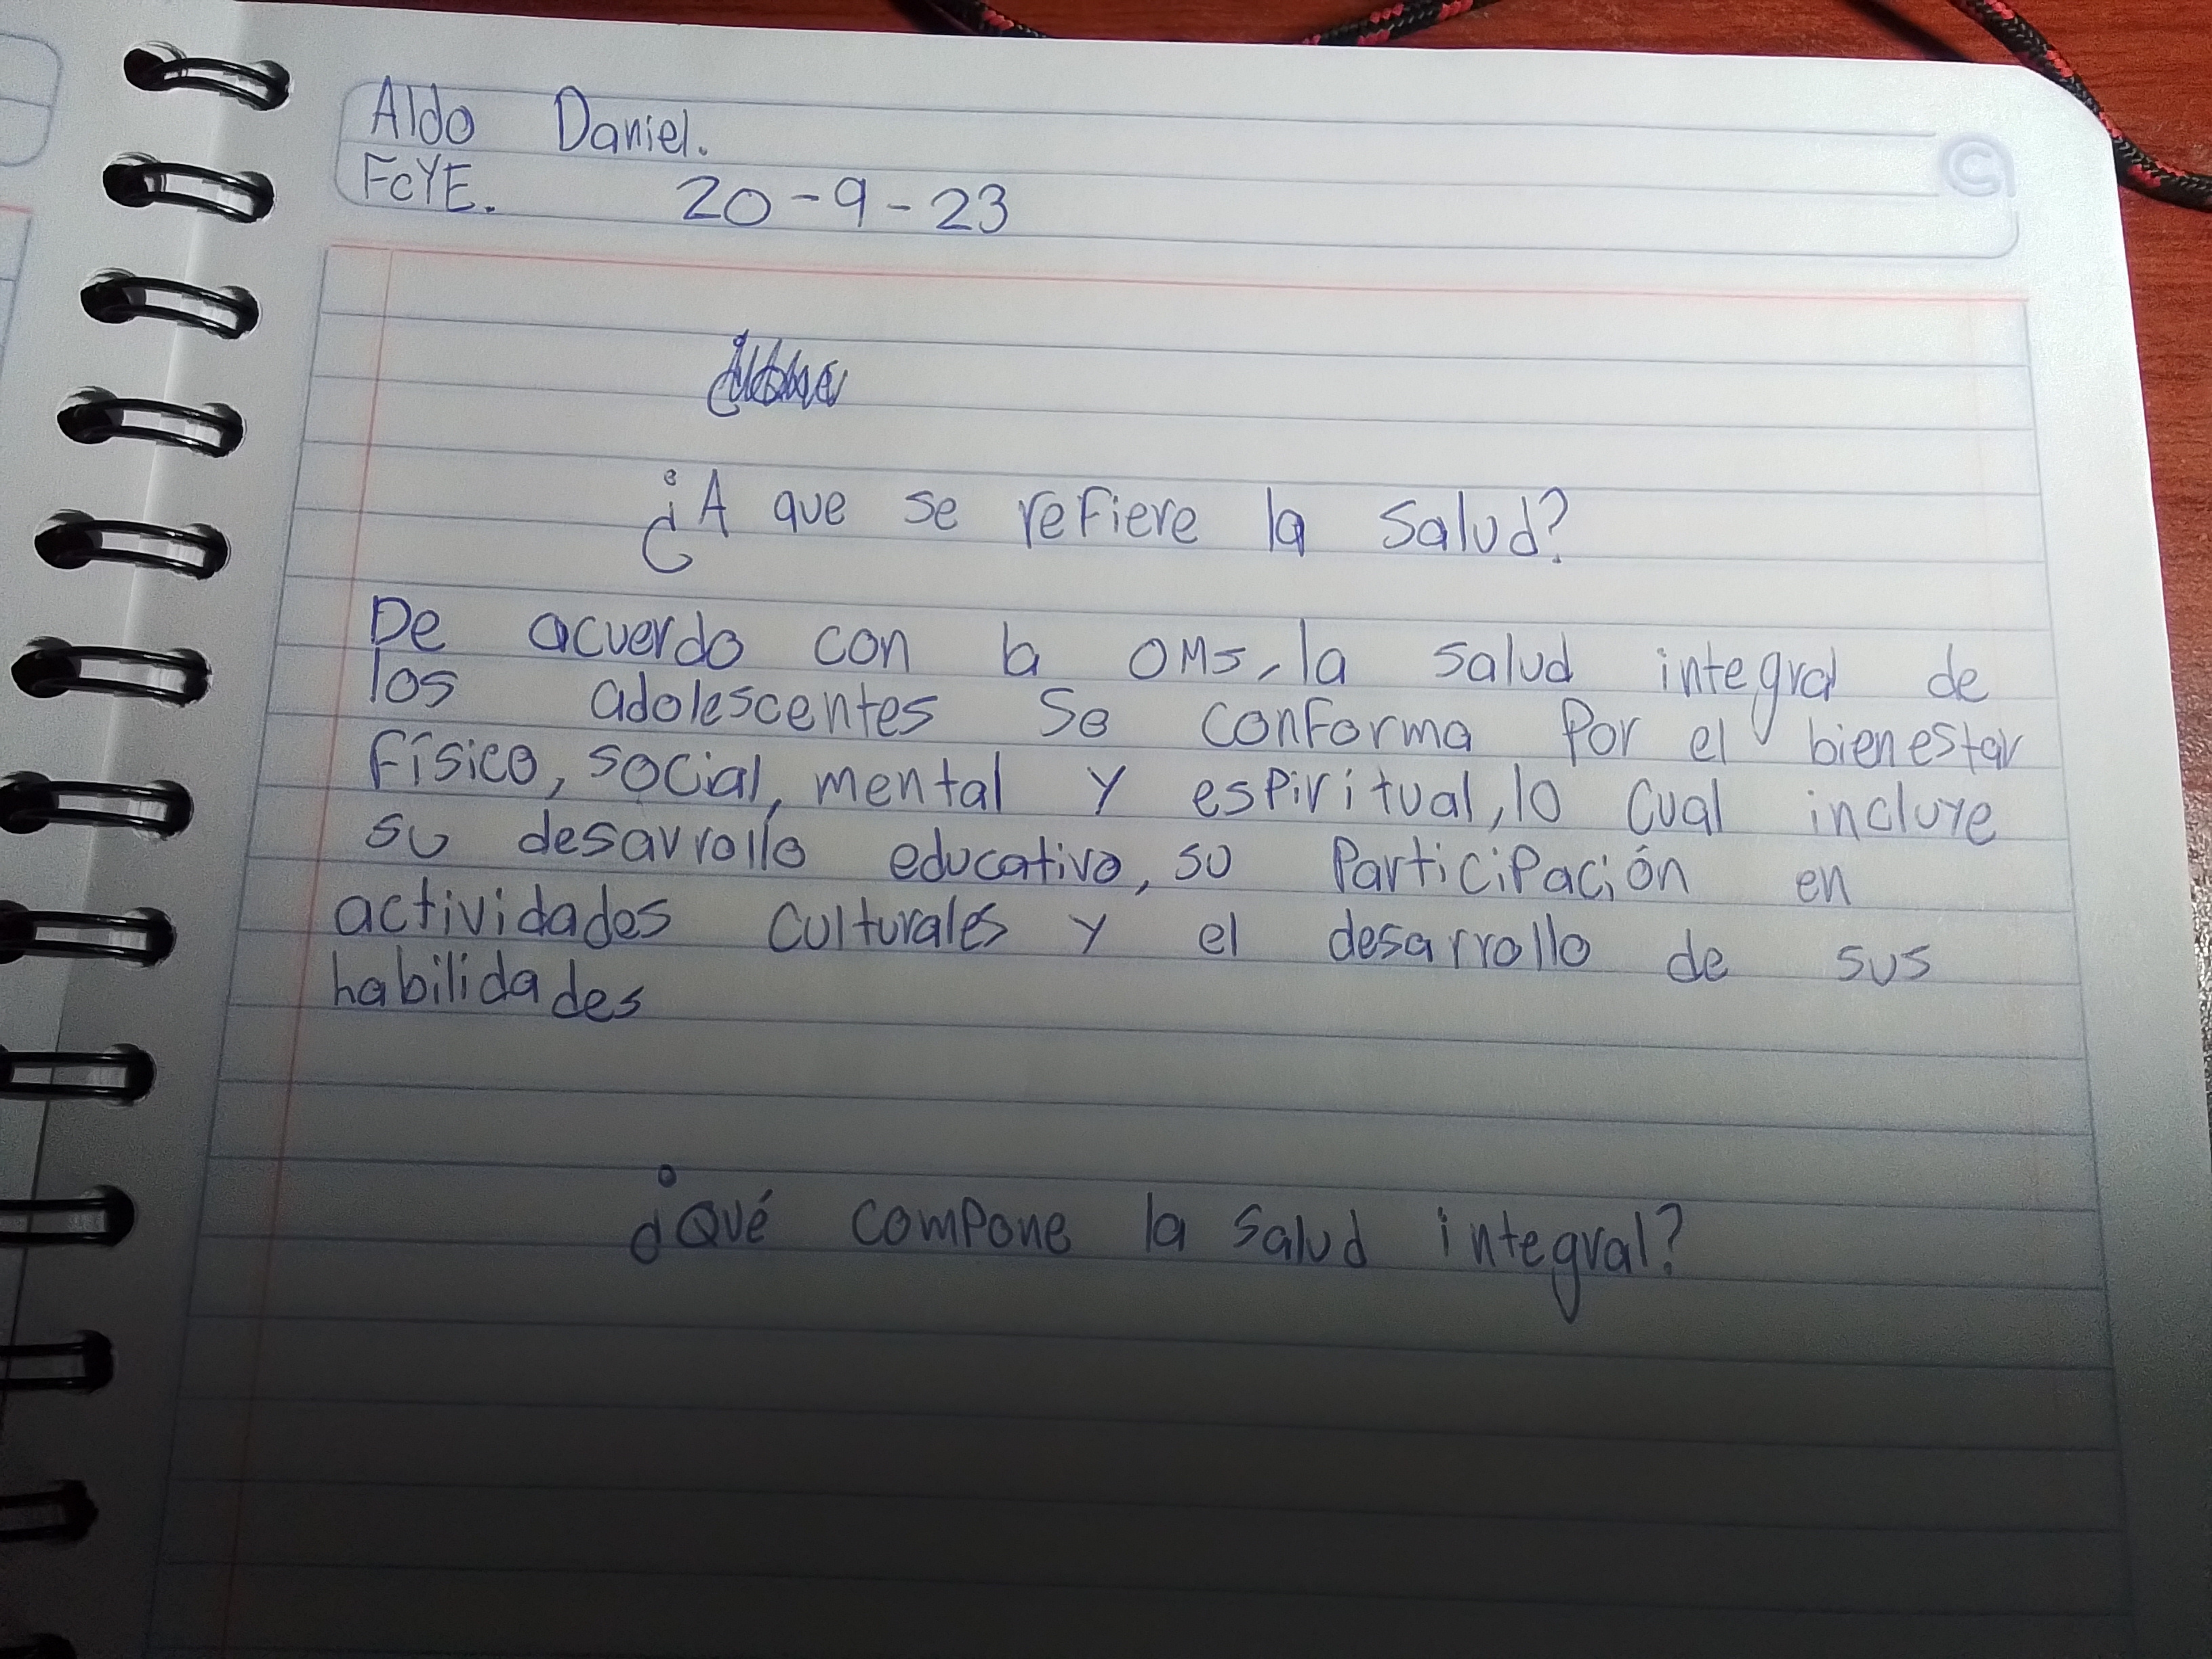 Aldo Daniel.
FCYE. 20-9-23
¿A que se refiere la salud?
De acuerdo con la OMS, la salud integral de
los adolescentes se conforma por el bienestar
físico, social, mental y espiritual, lo cual incluye
su desarrollo educativo, su participación en
actividades culturales y el desarrollo de sus
habilidades
¿Qué compone la salud integral?